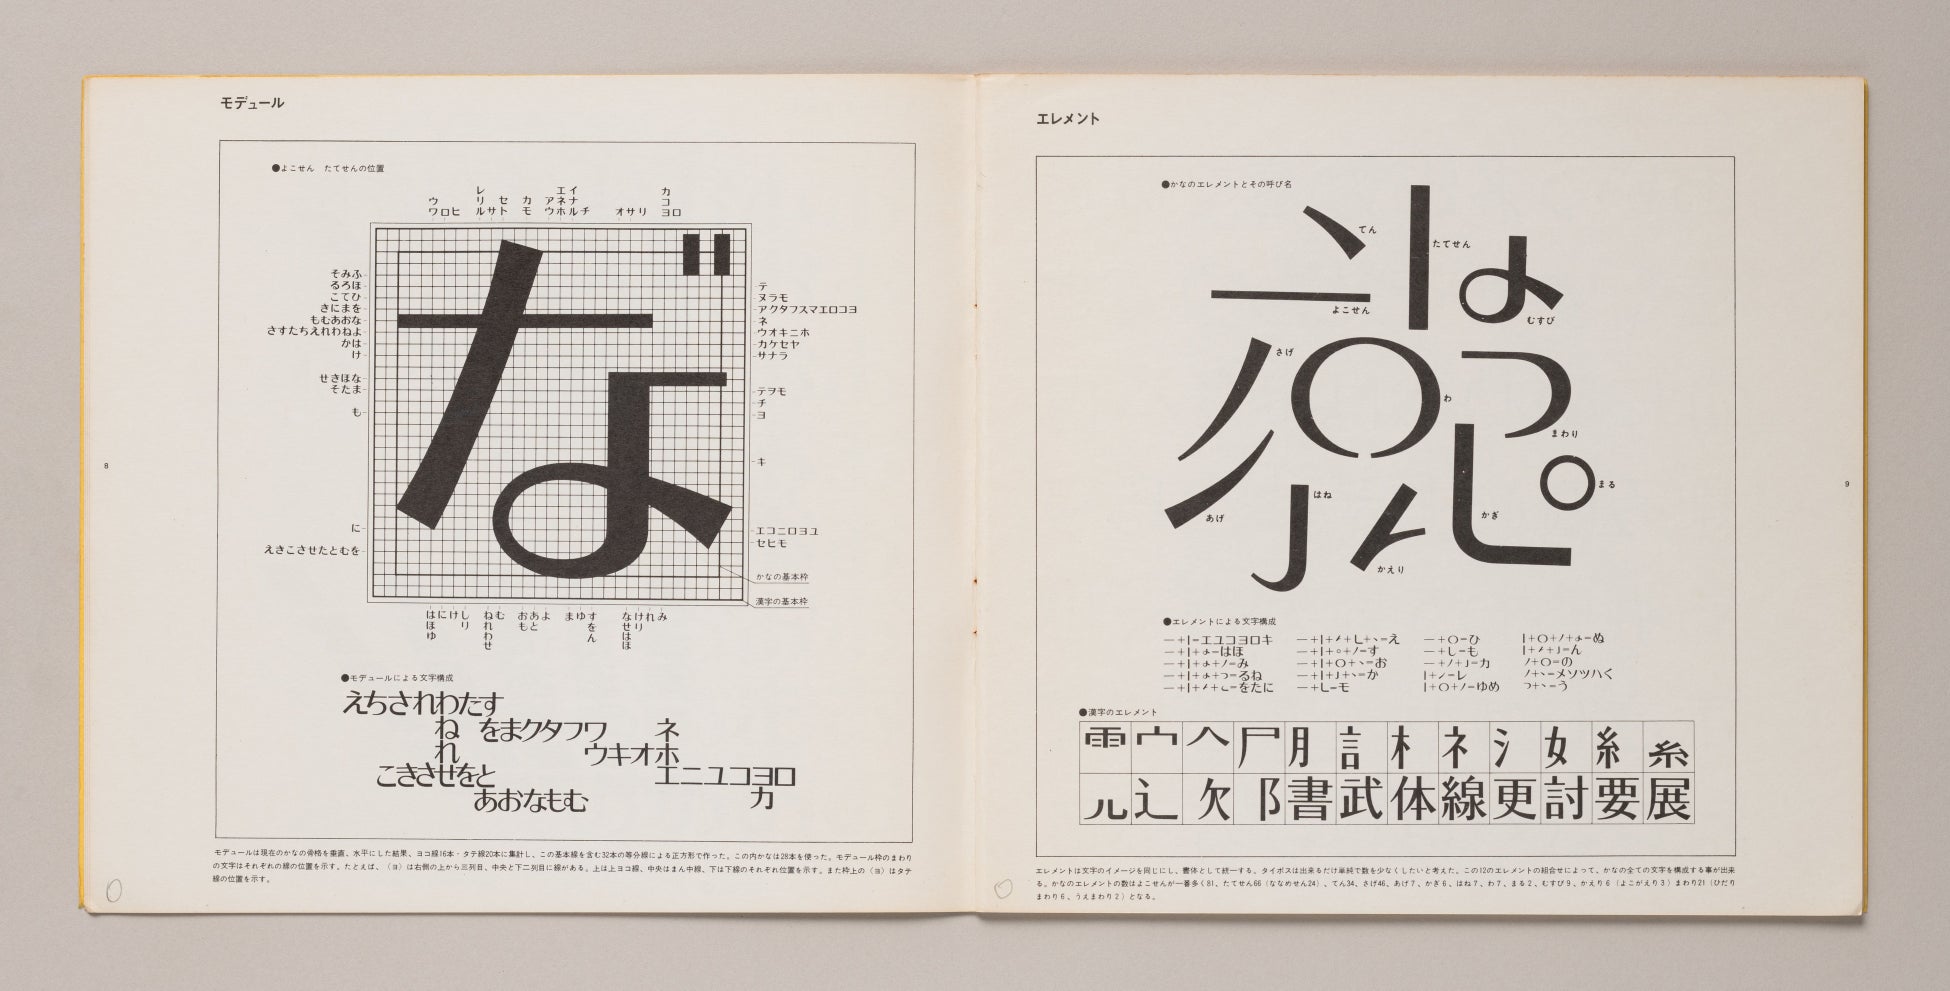 モデュール
●よこせん　たてせんの位置
ウ
ワロヒ
レ
リ
ルサト
セ
カ
モ
エイ
アネナ
ウホルチ
オサリ
カ
コ
ヨロ
そみふ
るろほ
こてひ
きにまを
もむあおな
さすたちえれわねよ
かは
け
せきほな
そたま
も
に
えきこさせたとむを
な
テ
ヌラモ
アクタフスマエロコヨ
ネ
ウオキニホ
カケセヤ
サナラ
テヲモ
チ
ヨ
キ
エコニロヨユ
セヒモ
かなの基本枠
漢字の基本枠
はにけし
ほ　　り
ゆ
ねむ
れ
わ
せ
おあよ
もと
まゆす
を
ん
なけれみ
せり
は
ほ
●モデュールによる文字構成
えちされわたす
ね　をまクタフワ　ネ
れ　ウキオホ
こきさせをと　エニユコヨロ
あおなもむ　カ
モデュールは現在のかなの骨格を垂直、水平にした結果、ヨコ線16本・タテ線20本に集計し、この基本線を含む32本の等分線による正方形で作った。この内かなは28本を使った。モデュール枠のまわり
の文字はそれぞれの線の位置を示す。たとえば、（ヨ）は右側の上から三列目、中央と下二列目に線がある。上は上ヨコ線、中央はまん中線、下は下線のそれぞれ位置を示す。また枠上の（ヨ）はタテ
線の位置を示す。
8
エレメント
●かなのエレメントとその呼び名
てん
たてせん
よこせん
むすび
さげ
わ
まわり
まる
はね
かぎ
あげ
かえり
●エレメントによる文字構成
エユコヨロキ
はほ
み
るね
をたに
え
す
お
か
モ
ひ
も
カ
レ
ゆめ
ぬ
ん
の
メソツハく
う
●漢字のエレメント
雨宀𠆢尸月言木ネシ女糸糸
儿辶欠阝書武体線更討要展
エレメントは文字のイメージを同じにし、書体として統一する、タイポスは出来るだけ単純で数を少なくしたいと考えた。この12のエレメントの組合せによって、かなの全ての文字を構成する事が出来
る。かなのエレメントの数はよこせんが一番多く81、たてせん66（ななめせん24）、てん34、さげ46、あげ7、かぎ6、はね7、わ7、まる2、むすび9、かえり6（よこがえり3）まわり21（ひだり
まわり6、うえまわり2）となる。
9